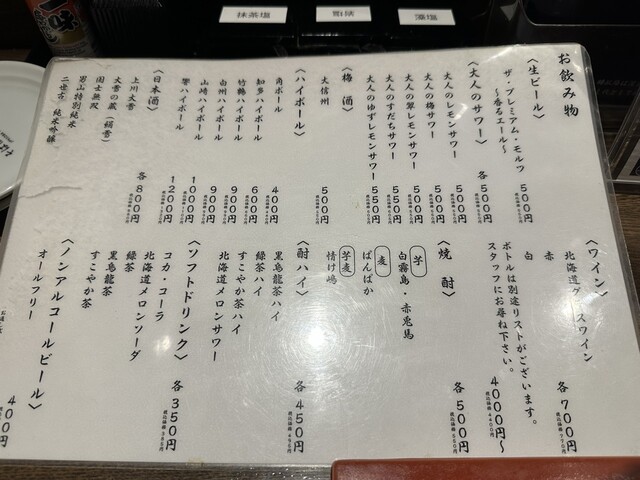 抹茶塩
藻塩
一味
お飲み物
〈生ビール〉
ザ・プレミアム・モルツ
〜香るエール〜
500円
〈大人のサワー〉
各500円
大人のレモンサワー
500円
大人の梅サワー
500円
大人の翠レモンサワー
550円
大人のすだちサワー
550円
大人のゆずレモンサワー
550円
〈梅酒〉
大信州
500円
〈ハイボール〉
角ボール
400円
知多ハイボール
600円
竹鶴ハイボール
900円
白州ハイボール
900円
山崎ハイボール
1000円
響ハイボール
1200円
〈日本酒〉
各800円
上川大雪
大雪の蔵(絹雪)
国士無双
男山特別純米
二世古 純米吟醸
〈ワイン〉
北海道グラスワイン
各700円
税込価格770円
赤
白
ボトルは別途リストがございます。
スタッフにお尋ね下さい。
4000円〜
税込価格4400円
〈焼酎〉
各500円
税込価格550円
芋
白霧島・赤兎馬
麦
ばんばか
芋麦
情け嶋
〈酎ハイ〉
各450円
税込価格495円
黒烏龍茶ハイ
緑茶ハイ
すこやか茶ハイ
北海道メロンサワー
〈ソフトドリンク〉
各350円
税込価格385円
コカ・コーラ
北海道メロンソーダ
緑茶
黒烏龍茶
すこやか茶
〈ノンアルコールビール〉
オールフリー
400円